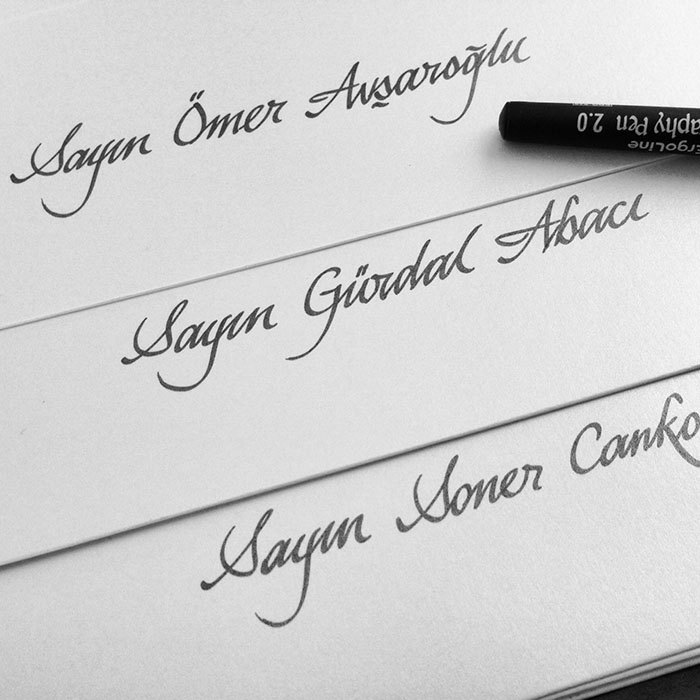 Sayın Ömer Avşaroğlu
ErgoLine
aphy Pen 2.0
Sayın Gürdal Abacı
Sayın Soner Canko